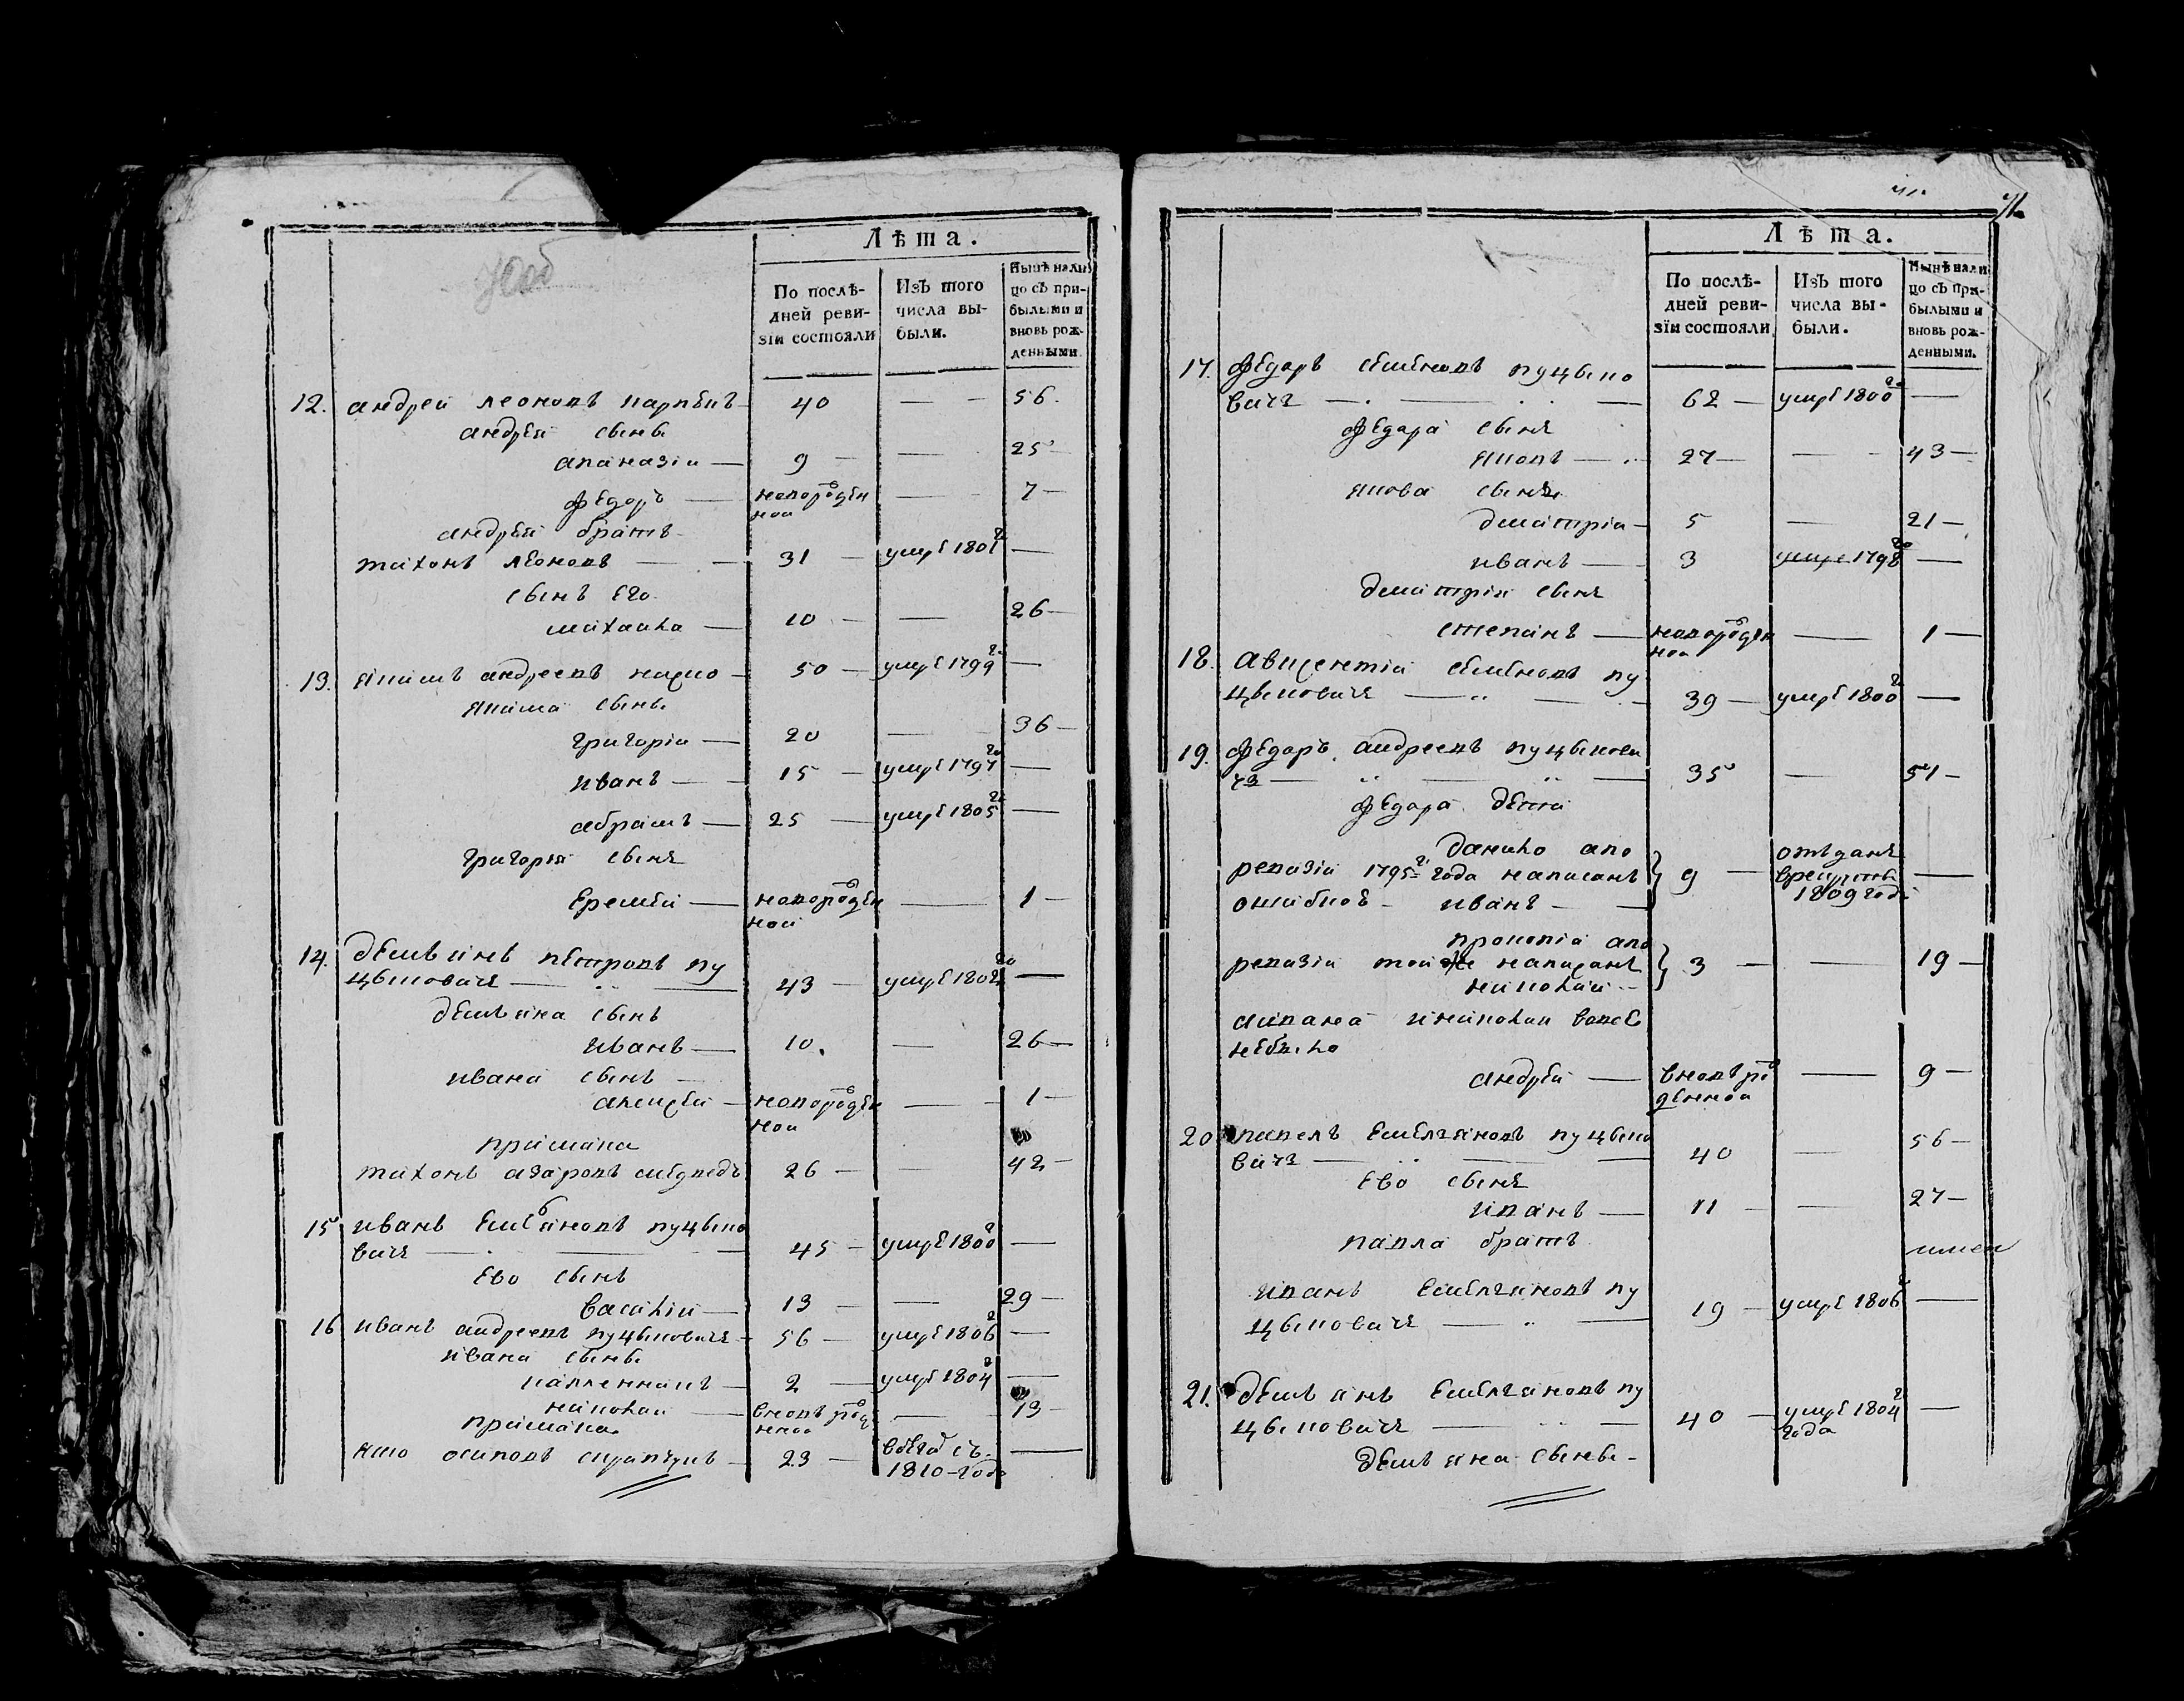 Лѣта.
По послѣ-
дней реви-
зїи состояли
Изъ того
числа вы-
были.
Нынѣ нали
цо съ при-
былыми и
вновь рож-
денными.
12. андреи леоновъ 40 — — 56.
андрея сыны
апаназiи — 9 — — 25 —
Федоръ — новорожден ной — 7 —
андрея братъ
тихонъ леоновъ — 31 — умре 1801 г —
сынъ его
михаила — 10 — — 26 —
13. якимъ андреевъ — 50 — умре 1799 г —
якима сыны
григорiи — 20 — 36 —
иванъ — 15 — умре 1797 го —
абрамъ — 25 — умре 1805 г —
григорiя сынъ
Еремеи — новорожден ной — 1 —
14. демьянъ петровъ пу
цыковичъ — 43 — умре 1802 го —
демьяна сынъ
иванъ — 10. — 26 —
ивана сынъ
алексеи — новорожден ной — 1 —
примака
тихонъ азаровъ медведь 26 — — 42 —
15 иванъ Емельяновъ пуцыко
вичъ — 45 — умре 1800 г —
Ево сынъ
василiи — 13 — — 29 —
16 иванъ андреевъ пуцыковичъ — 56 — умре 1806 г —
ивана сыны
— 2 — умре 1804 г —
николаи — вновь рожд еной — 13 —
примака
осиповъ — 23 — въ бегах съ 1810 года —
71.
Лѣта.
По послѣ-
дней реви-
зїи состояли
Изъ того
числа вы-
были.
Нынѣ нали
цо съ при-
былыми и
вновь рож-
денными.
17. Федоръ семеновъ пуцыко
вичъ — 62 — умре 1800 го —
Федара сынъ
яковъ — 27 — — 43 —
якова сыны
дмитрiи — 5 — 21 —
иванъ — 3 умре 1798 го —
дмитрiя сынъ
степанъ — новорожден ной — 1 —
18. авксентiи семеновъ пу
цыковичъ — 39 — умре 1800 г —
19. Федоръ андреевъ пуцыкови
чъ — 35 — 51 —
Федара дети
данило а по
ревизiи 1795 г. года написанъ } 9 — отъданъ
в рекруты
1809 года —
ошибкоЕ иванъ —
прокопiи а по
ревизiи той же написанъ } 3 — — 19 —
николаи —
а ивана и николаи вовсе
не было
андреи — вновь ро жденной — 9 —
20 павелъ Емельяновъ пуцыко
вичъ — 40 — 56 —
Ево сынъ
иванъ — 11 — — 27 —
павла братъ
иванъ Емельяновъ пу
цыковичъ — 19 — умре 1806 г —
21. демьянъ Емельяновъ пу
цыковичъ — 40 — умре 1804 г года —
демьяна сыны —